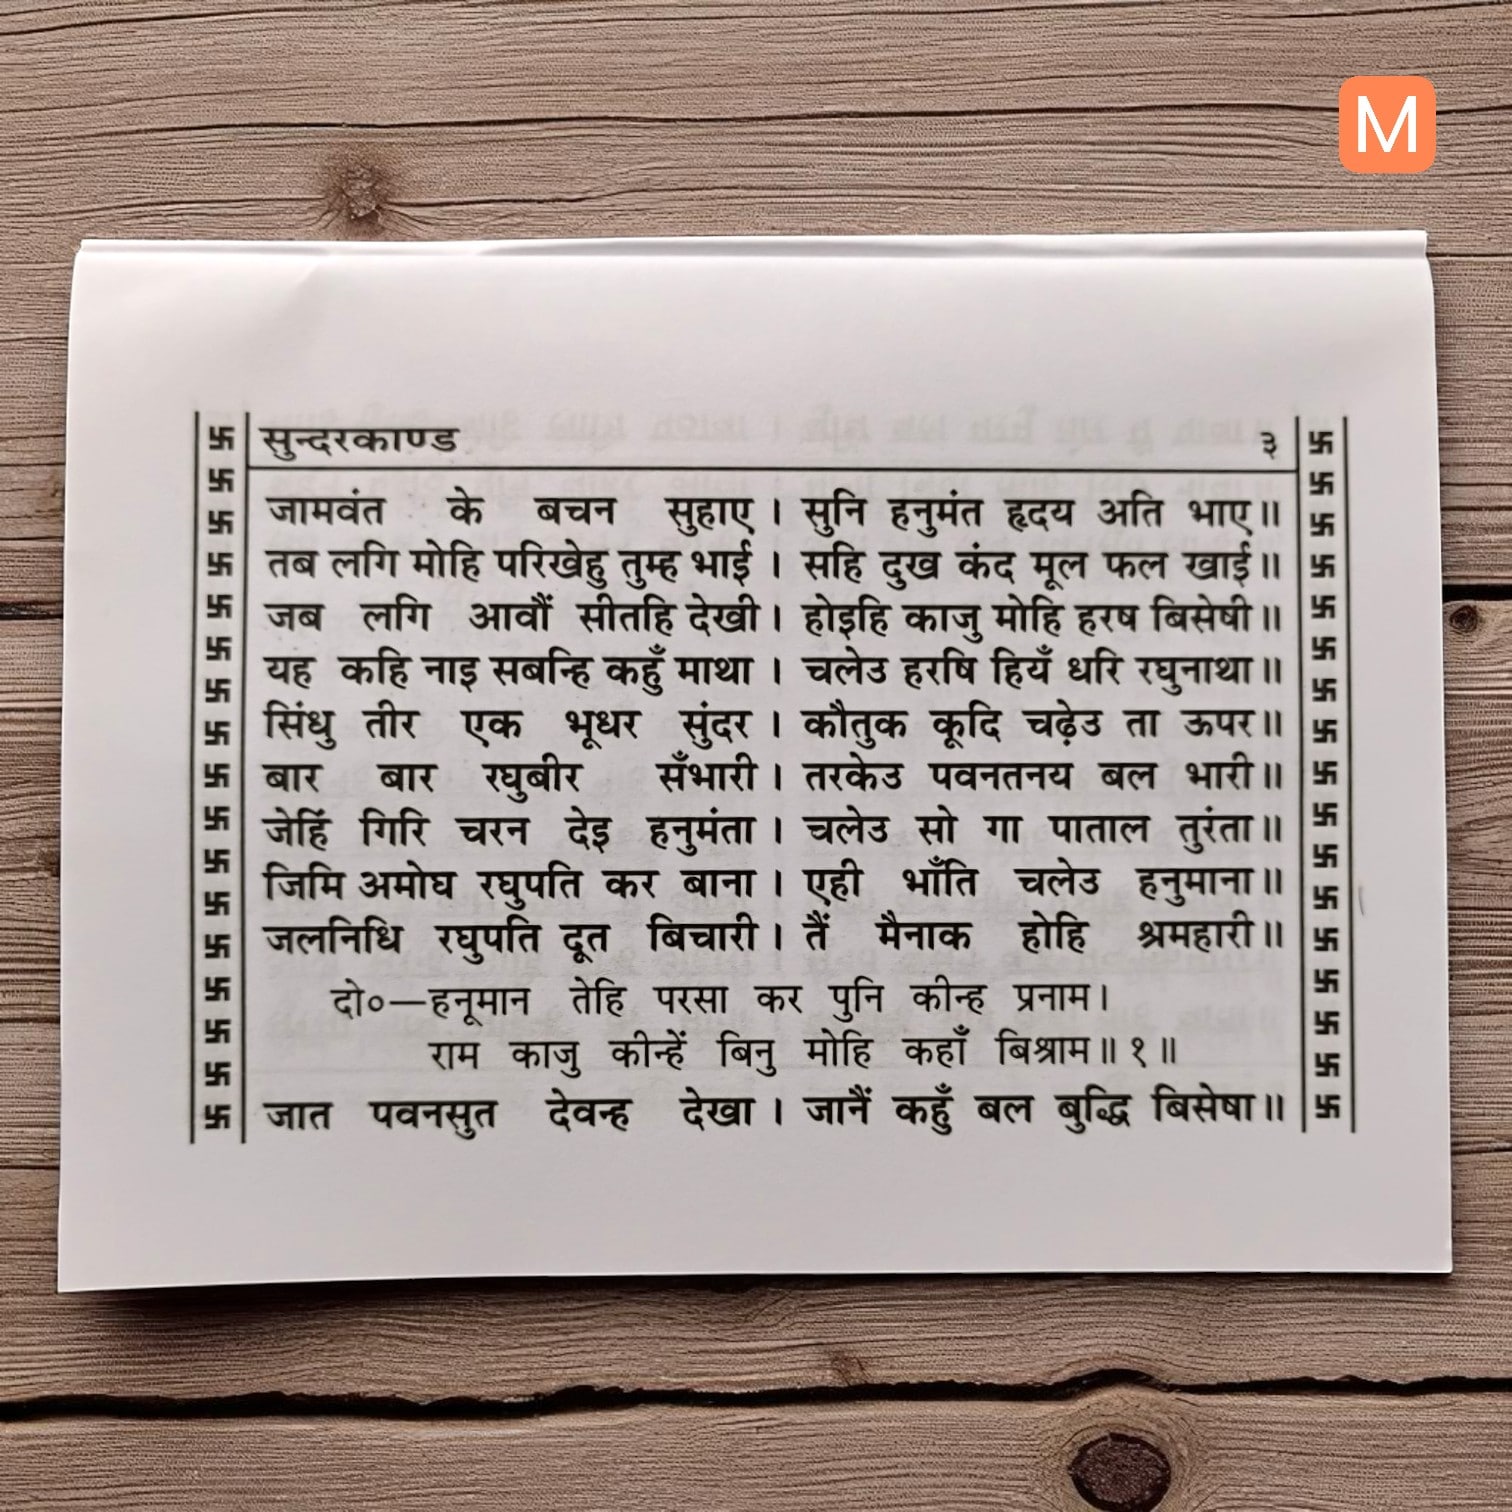 M
सुन्दरकाण्ड ३
जामवंत के बचन सुहाए। सुनि हनुमंत हृदय अति भाए॥
तब लगि मोहि परिखेहु तुम्ह भाई। सहि दुख कंद मूल फल खाई॥
जब लगि आवौं सीतहि देखी। होइहि काजु मोहि हरष बिसेषी॥
यह कहि नाइ सबन्हि कहुँ माथा। चलेउ हरषि हियँ धरि रघुनाथा॥
सिंधु तीर एक भूधर सुंदर। कौतुक कूदि चढ़ेउ ता ऊपर॥
बार बार रघुबीर सँभारी। तरकेउ पवनतनय बल भारी॥
जेहिं गिरि चरन देइ हनुमंता। चलेउ सो गा पाताल तुरंता॥
जिमि अमोघ रघुपति कर बाना। एही भाँति चलेउ हनुमाना॥
जलनिधि रघुपति दूत बिचारी। तैं मैनाक होहि श्रमहारी॥
दो०—हनूमान तेहि परसा कर पुनि कीन्ह प्रनाम।
राम काजु कीन्हें बिनु मोहि कहाँ बिश्राम॥ १॥
जात पवनसुत देवन्ह देखा। जानैं कहुँ बल बुद्धि बिसेषा॥